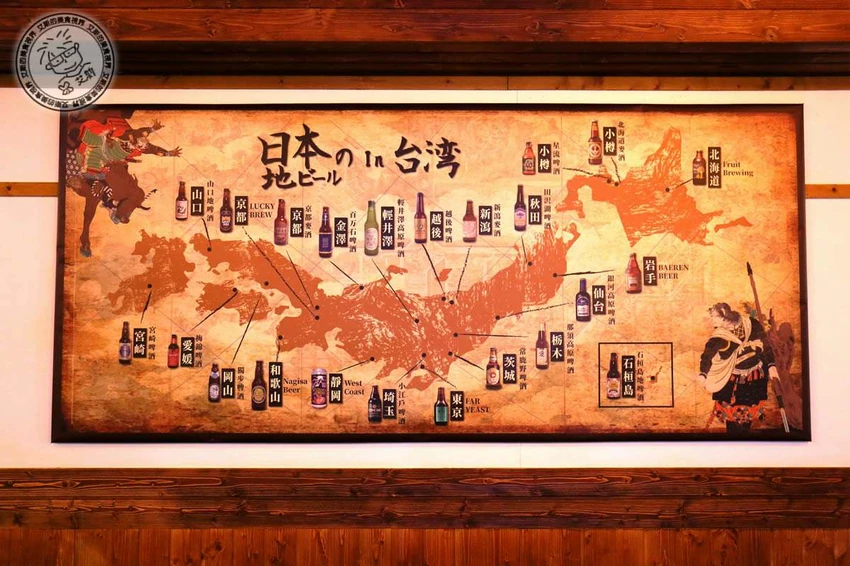 艾斯的美食視界
艾斯
日本の In 台湾
地ビール
小樽
星流啤酒
小樽
北海道麥酒
北海道
Fruit Brewing
山口
山口地啤酒
京都
LUCKY BREW
京都
京都麥酒
金澤
百万石啤酒
輕井澤
輕井澤高原啤酒
越後
越後啤酒
新潟
新潟麥酒
秋田
田沢湖啤酒
岩手
BAEREN BEER
仙台
銀河高原啤酒
栃木
那須高原啤酒
茨城
常鹿野啤酒
東京
FAR YEAST
埼玉
小江戶啤酒
靜岡
West Coast
和歌山
Nagisa Beer
岡山
獨步啤酒
愛媛
梅錦啤酒
宮崎
宮崎啤酒
石垣島
石垣島地啤酒